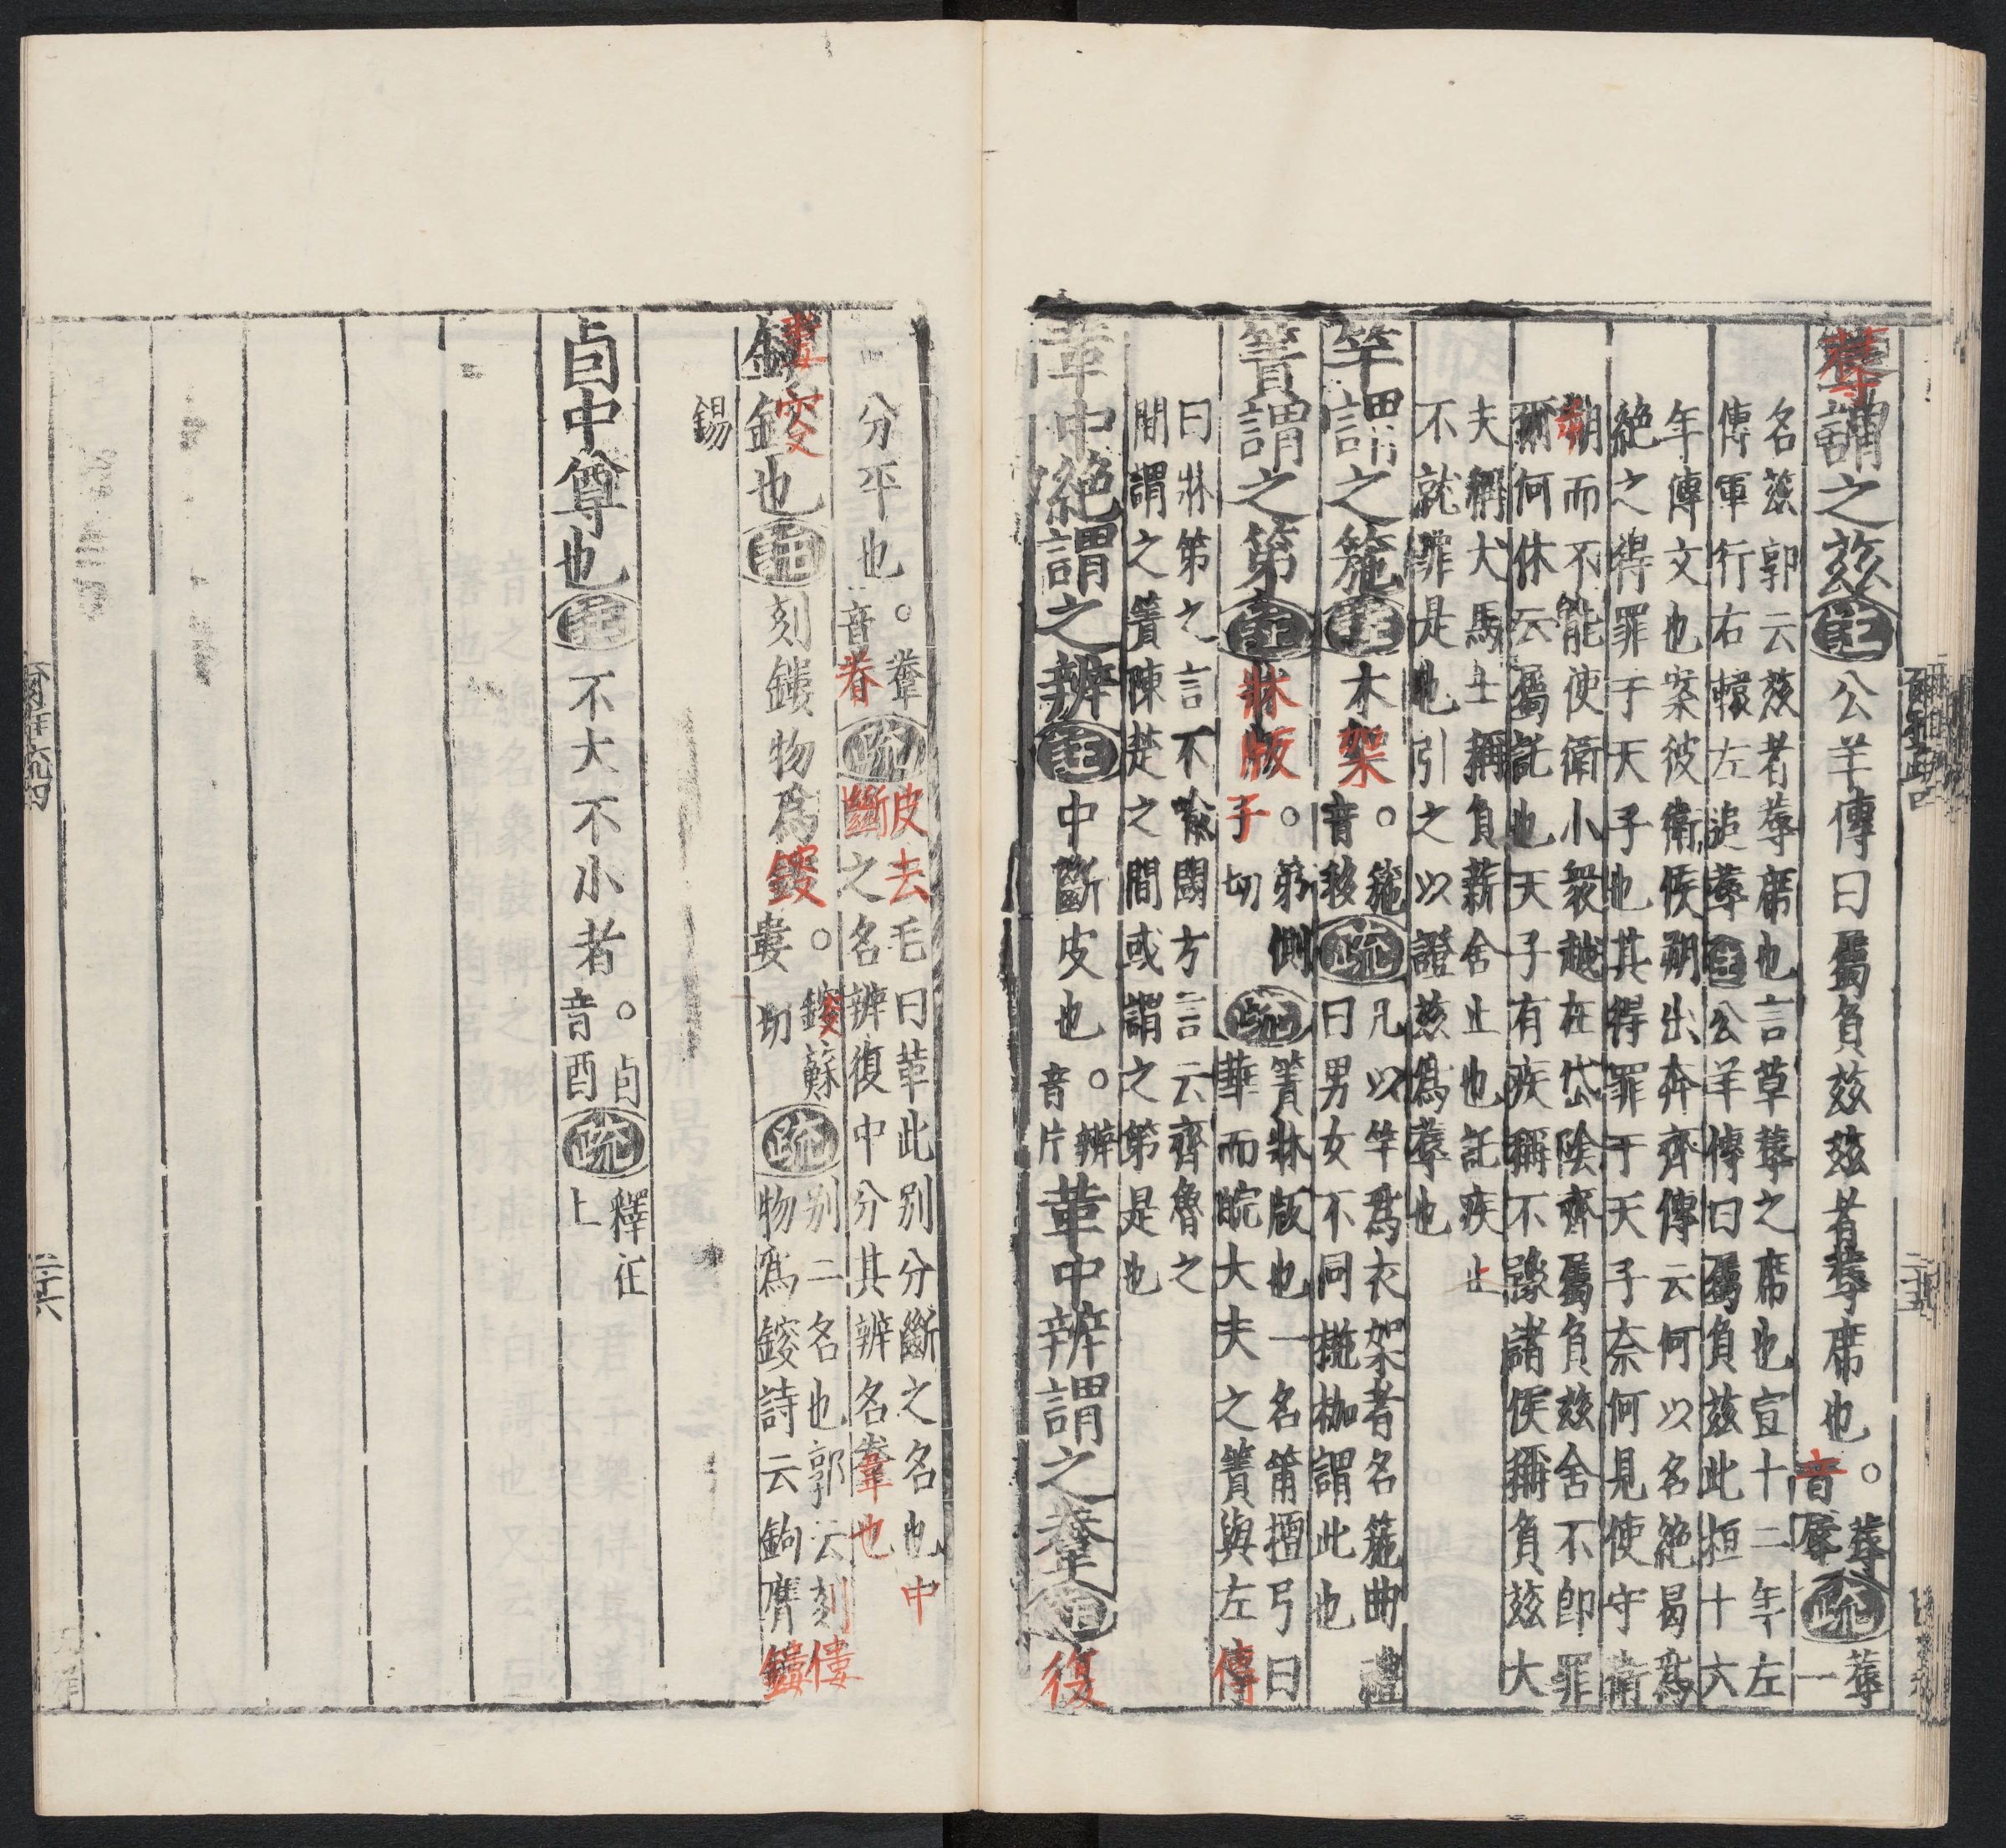 蓐謂之茲註公羊傳曰屬負茲茲者蓐席也。蓐音蓐疏蓐一
名茲郭云茲者蓐席也言草蓐之席也宣十二年左
傳軍行右轅左追蓐註公羊傳曰屬負茲此桓十六
年傳文也案彼衛侯朔出奔齊傳云何以名絕曷爲
絕之得罪于天子也其得罪于天子奈何見使守衛
朔而不能使衛小衆越在岱陰齊屬負茲舍不卽罪
爾何休云屬託也天子有疾稱不豫諸侯稱負茲大
夫稱犬馬士稱負薪舍止也託疾止
不就罪是也引之以證茲爲蓐也
竿謂之箷註木架。箷音移疏凡以竿爲衣架者名箷曲禮
曰男女不同椸枷謂此也
簀謂之笫註牀版。笫側子切疏簀牀版也一名笫檀弓曰
華而睆大夫之簀與左傳
曰牀笫之言不喻閾方言云齊魯之
間謂之簀陳楚之間或謂之笫是也
革中絕謂之辨註中斷皮也。辨音片革中辨謂之韏註復
分平也。韏音眷疏皮去毛曰革此別分斷之名也中
斷之名辨復中分其辨名韏也
鏤鋑也註刻鏤物爲鋑。鋑蘇婁切疏別二名也郭云刻鏤
物爲鋑詩云鉤膺鏤
錫
卣中尊也註不大不小者。卣音酉疏釋在
上
二十六